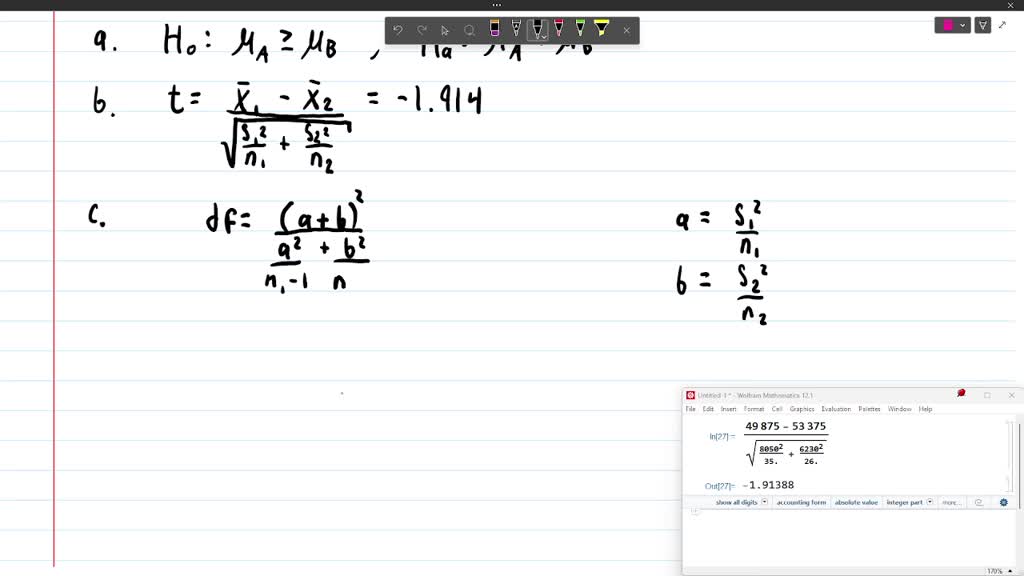 a. H₀ : μ_A ≥ μ_B ,
b. t = (x̄₁ - x̄₂) / √(S₁²/n₁ + S₂²/n₂) = -1.914
c. df = (a+b)² / (a²/(n₁-1) + b²/n)
a = S₁²/n₁
b = S₂²/n₂
Untitled-1 * - Wolfram Mathematica 12.1
File Edit Insert Format Cell Graphics Evaluation Palettes Window Help
In[27]:= (49 875 - 53 375) / √(8050²/35. + 6230²/26.)
Out[27]= -1.91388
show all digits accounting form absolute value integer part more...
170%